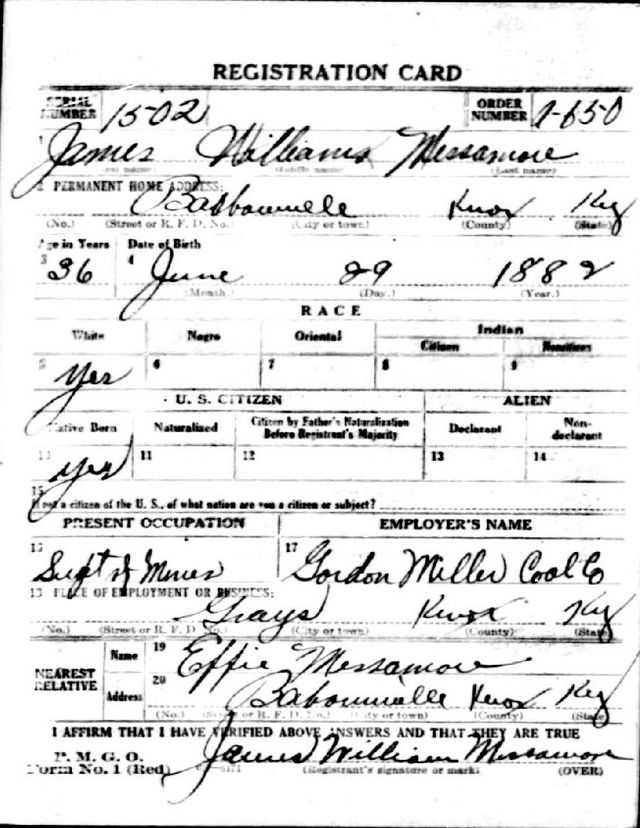 REGISTRATION CARD
SERIAL NUMBER 1502 ORDER NUMBER A-650
1 James Williams Messamore
(First name) (Middle name) (Last name)
2 PERMANENT HOME ADDRESS:
Barbourville Knox Ky
(No.) (Street or R. F. D. No.) (City or town) (County) (State)
Age in Years Date of Birth
3 36 4 June 29 1882
(Month.) (Day.) (Year.)
RACE
White Negro Oriental Indian
Citizen Noncitizen
5 Yes 6 7 8 9
U. S. CITIZEN ALIEN
Native Born Naturalized Citizen by Father's Naturalization Before Registrant's Majority Declarant Non-declarant
10 Yes 11 12 13 14
15
If not a citizen of the U. S., of what nation are you a citizen or subject?
PRESENT OCCUPATION EMPLOYER'S NAME
16 Supt of Mines 17 Gordon Miller Coal Co
18 PLACE OF EMPLOYMENT OR BUSINESS:
Grays Knox Ky
(No.) (Street or R. F. D. No.) (City or town) (County) (State)
NEAREST RELATIVE Name 19 Effie Messamore
Address 20 Barbourville Knox Ky
(No.) (Street or R. F. D. No.) (City or town) (County) (State)
I AFFIRM THAT I HAVE VERIFIED ABOVE ANSWERS AND THAT THEY ARE TRUE
P. M. G. O.
Form No. 1 (Red) James William Messamore
(Registrant's signature or mark) (OVER)